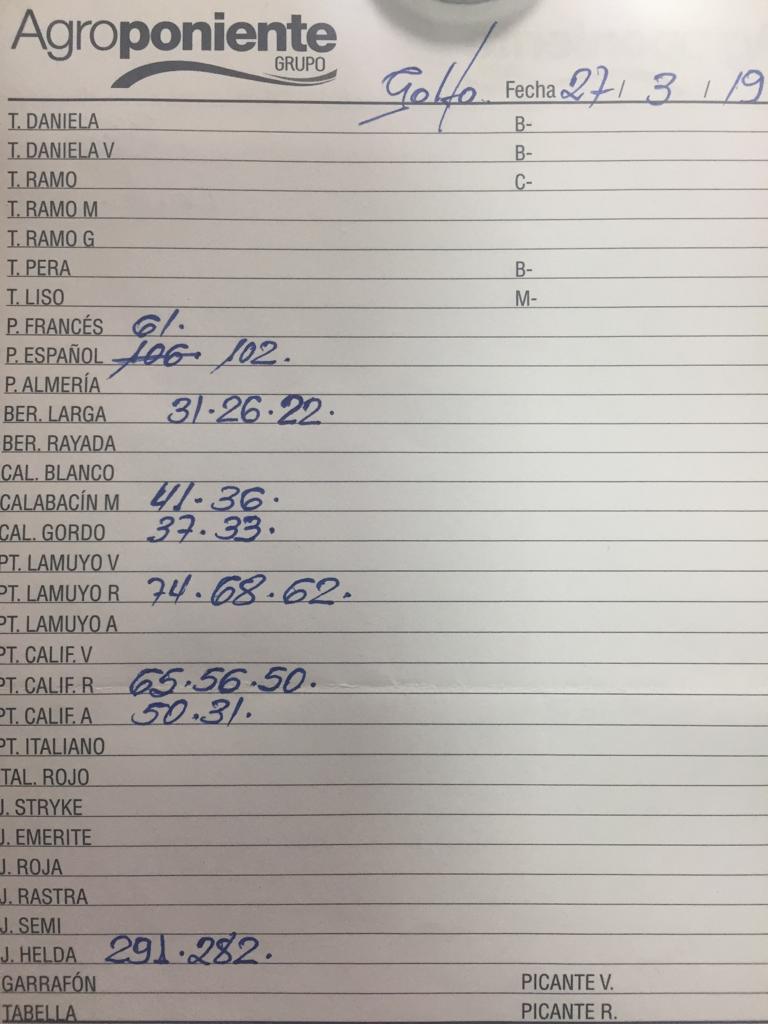 Agroponiente
GRUPO
Golfo Fecha 27 / 3 / 19
T. DANIELA B-
T. DANIELA V B-
T. RAMO C-
T. RAMO M
T. RAMO G
T. PERA B-
T. LISO M-
P. FRANCÉS 61.
P. ESPAÑOL 106. 102.
P. ALMERÍA
BER. LARGA 31.26.22.
BER. RAYADA
CAL. BLANCO
CALABACÍN M 41.36.
CAL. GORDO 37.33.
PT. LAMUYO V
PT. LAMUYO R 74.68.62.
PT. LAMUYO A
PT. CALIF. V
PT. CALIF. R 65.56.50.
PT. CALIF. A 50.31.
PT. ITALIANO
TAL. ROJO
J. STRYKE
J. EMERITE
J. ROJA
J. RASTRA
J. SEMI
J. HELDA 291.282.
GARRAFÓN PICANTE V.
TABELLA PICANTE R.